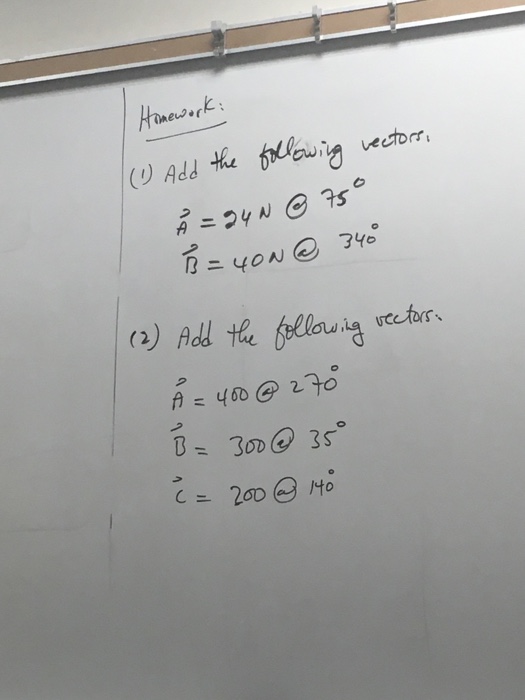 Homework:
(1) Add the following vectors.
A⃗ = 24N @ 75°
B⃗ = 40N @ 340°
(2) Add the following vectors.
A⃗ = 400 @ 270°
B⃗ = 300 @ 35°
C⃗ = 200 @ 140°